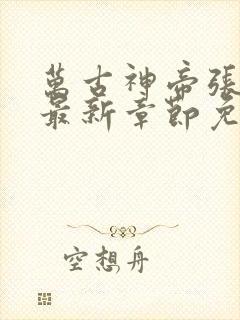 萬古神帝張
最新章節免
空想舟